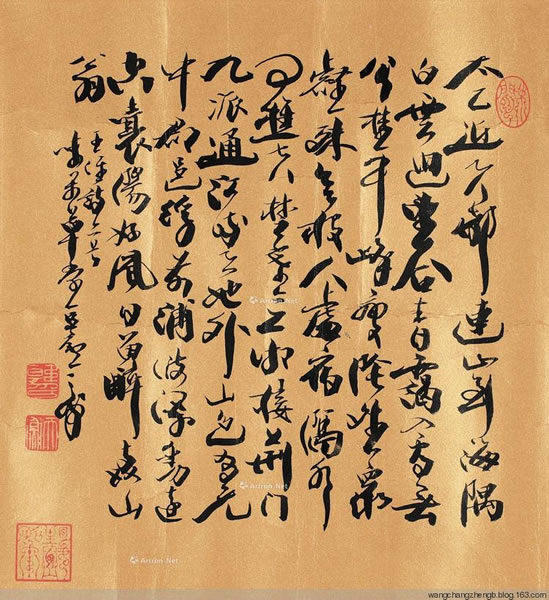 太乙近天都連山到海隅
白雲迴望合青靄入看無
分野中峰變陰晴衆
壑殊欲投人處宿隔水
問樵夫楚塞三湘接荆門
九派通江流天地外山色有无
中郡邑浮前浦波瀾動遠
空襄陽好風日留醉與山
翁
王維詩二首
草堂
Artron.Net
Artron.Net
Artron.Net
wangchangzhengb.blog.163.com